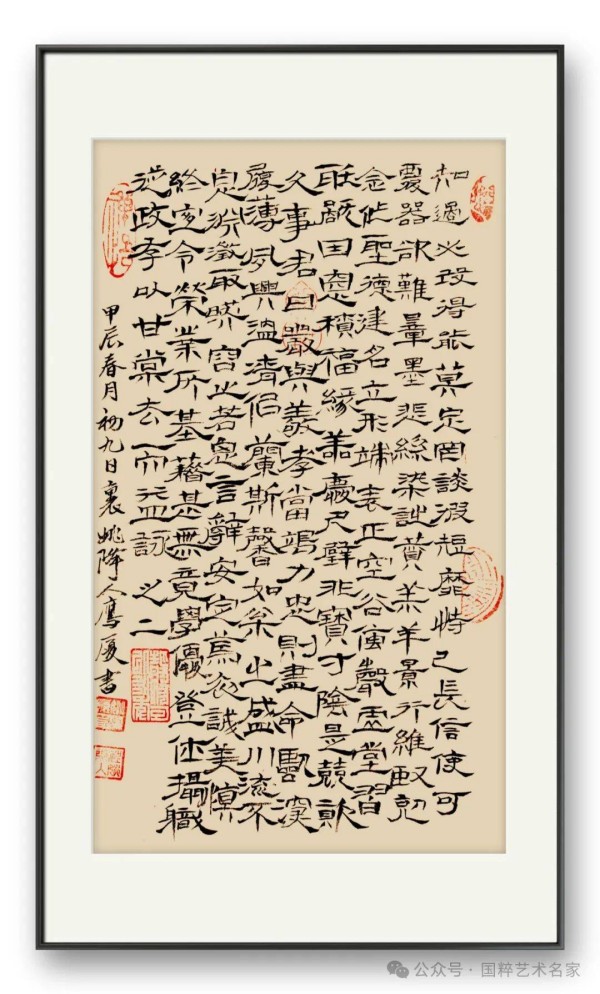 知過必改得能莫忘罔談彼短靡恃己長信使可
覆器欲難量墨悲絲染詩讃羔羊景行維賢克
念作聖德建名立形端表正空谷傳聲虛堂習
聽禍因惡積福緣善慶尺璧非寶寸陰是競資
父事君曰嚴與敬孝當竭力忠則盡命臨深
履薄夙興溫凊侣蘭斯馨如松之盛川流不
息淵澂取暎容止若思言辭安定篤初誠美慎
終宜令榮業所基藉甚無竟學優登仕攝職
從政存以甘棠去而益詠之二
甲辰春月初九日襄人書
公众号·国粹艺术名家